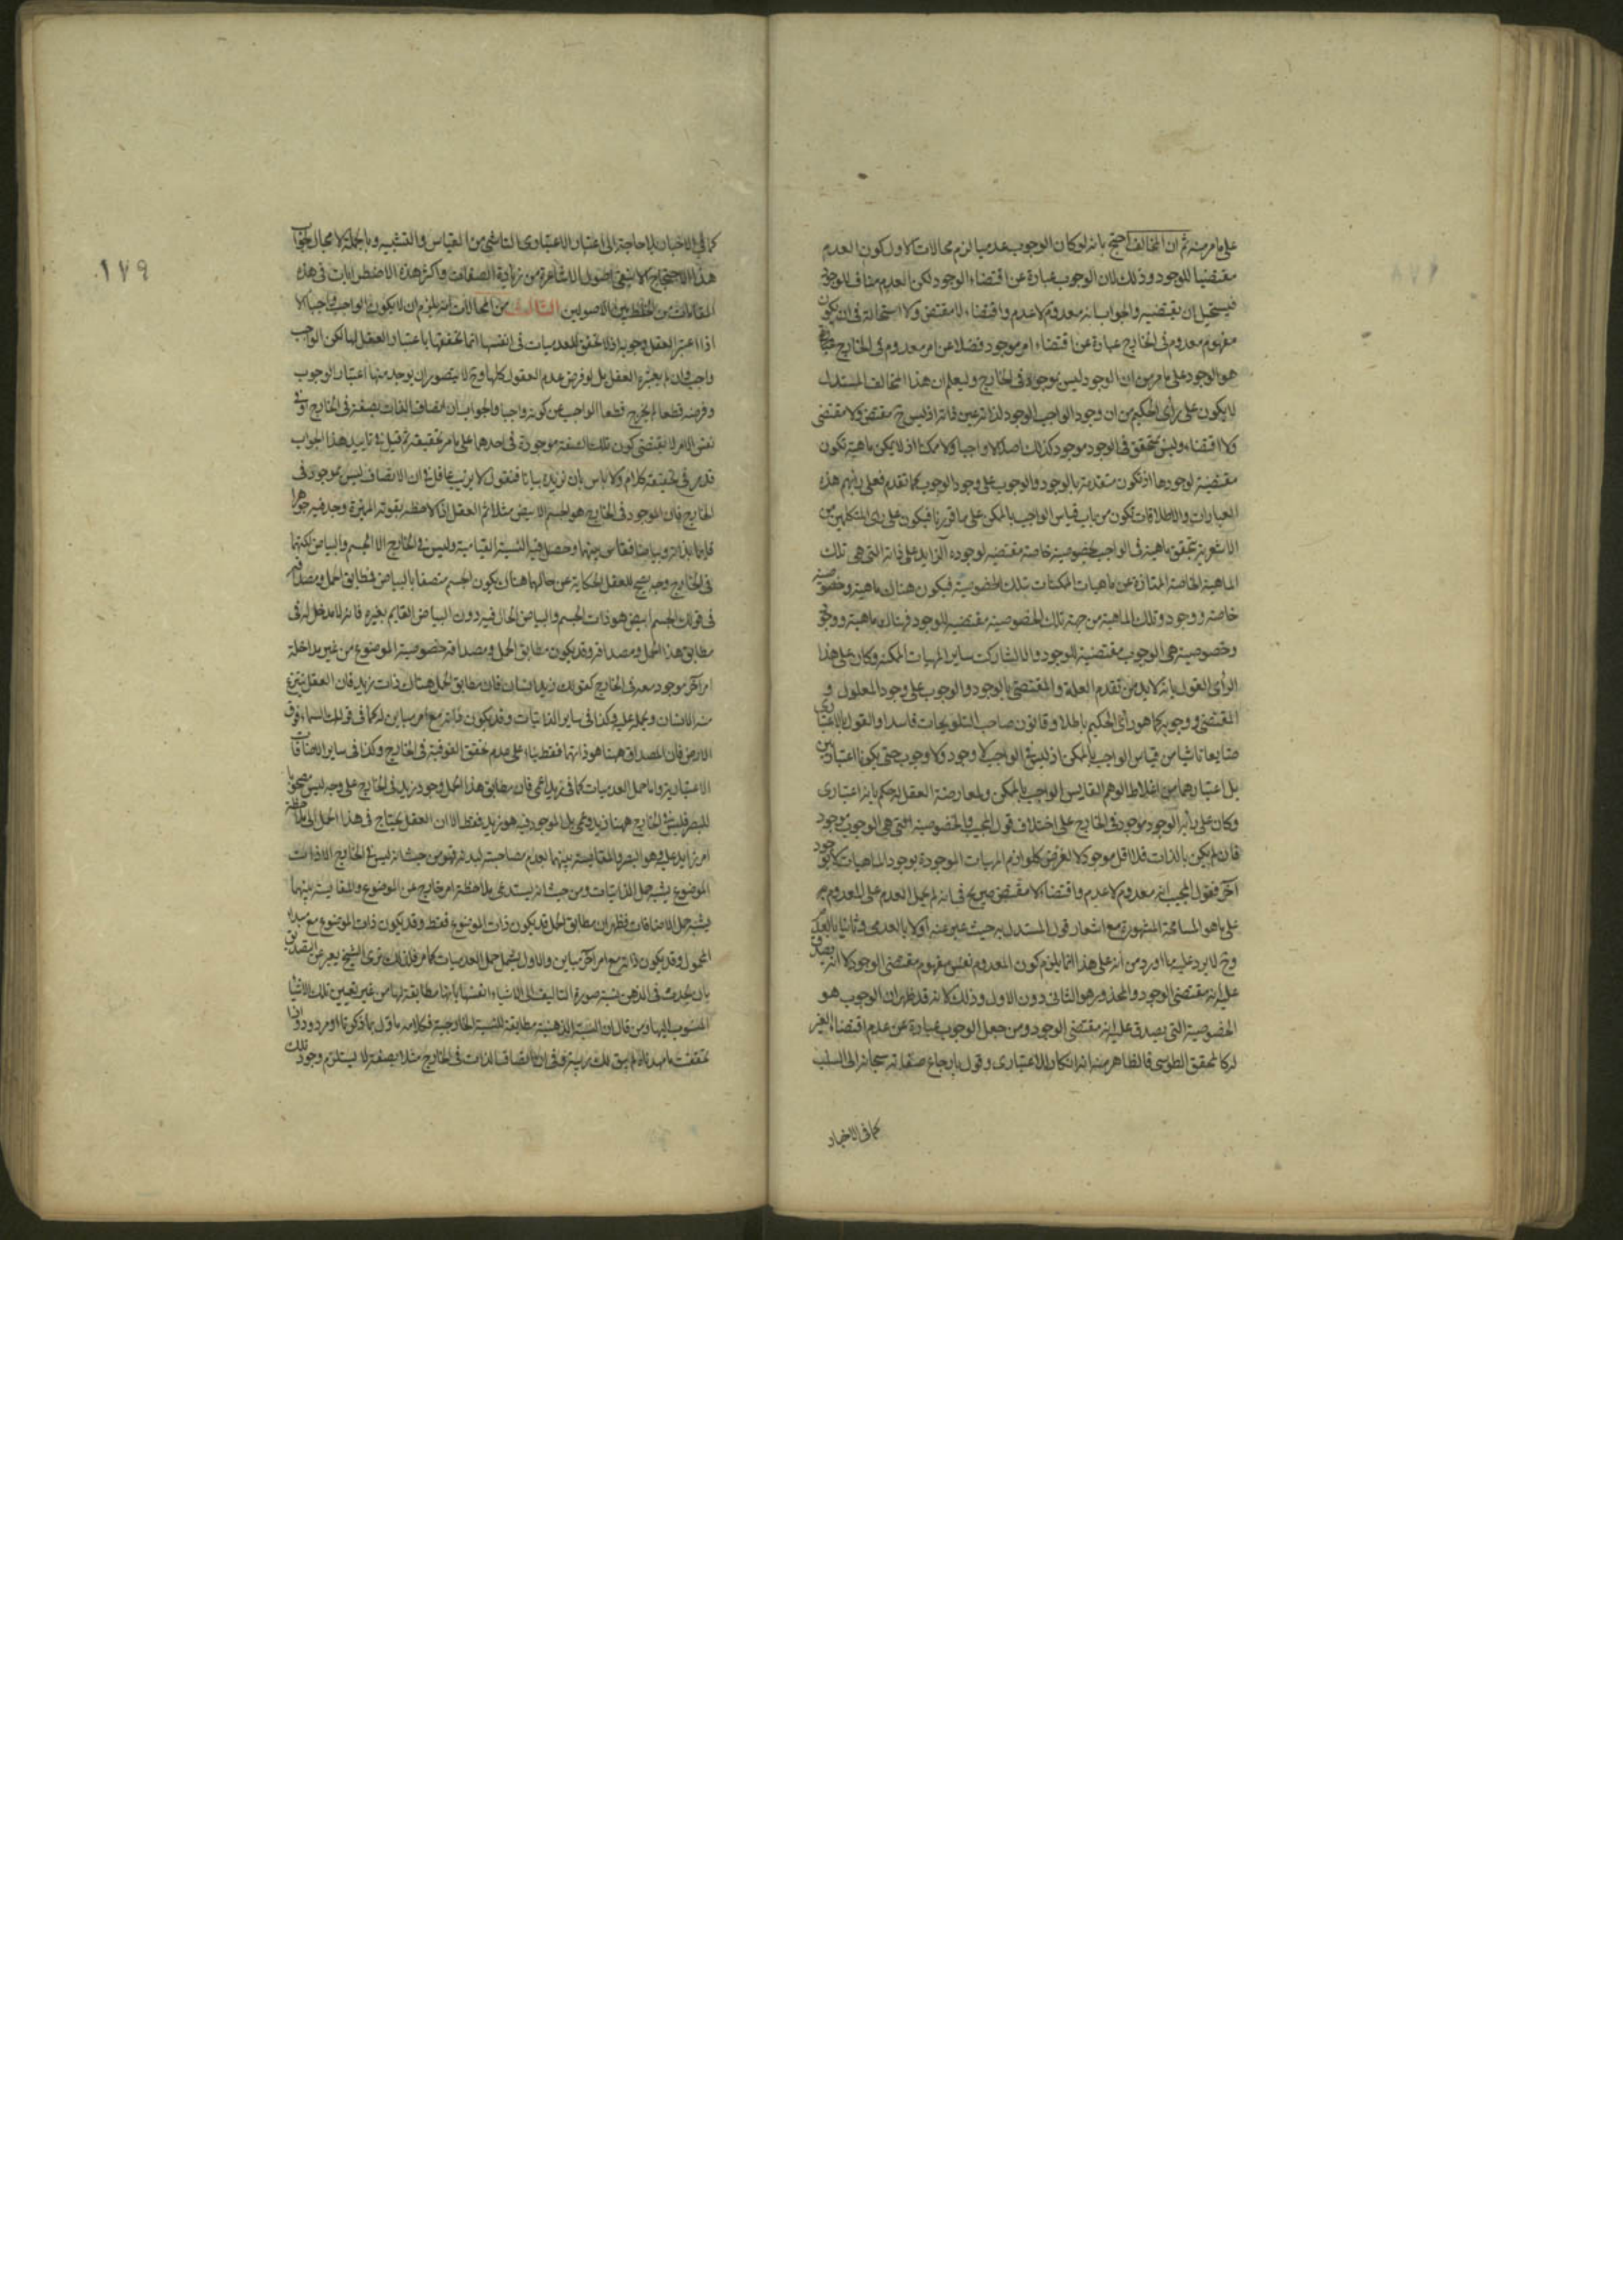 على ما مر منه ثم ان المخالف احتج بانه لو كان الوجوب عدميا لزم محالات الاول كون العدم
مقتضيا للوجود وذلك لان الوجوب عبارة عن اقتضاء الوجود لكن العدم مناف للوجود
فيستحيل ان يقتضيه والجواب انه معدوم لا عدم واقتضاء لا مقتض ولا استحالة في ان يكون
مفهوم معدوم في الخارج عبارة عن اقتضاء امر موجود فضلا عن امر معدوم في الخارج
هو الوجود على ما مر من ان الوجود ليس بموجود في الخارج وليعلم ان هذا المخالف المستدل
لا يكون على رأى الحكيم من ان وجود الواجب الوجود لذاته عين ذاته اذ ليس ثم مقتض ولا مقتضى
ولا اقتضاء وليس يتحقق في الوجود موجود كذلك اصلا لا واجبا ولا ممكنا اذ لا يمكن ماهية تكون
مقتضية لوجودها اذ تكون متقدمة بالوجود والوجوب على وجود الوجوب كما تقدم فعلى رأيهم هذه
العبارات والاطلاقات تكون من باب قياس الواجب بالممكن على ما قررنا فيكون على رأى المتكلمين من
الاشعرية يتحقق ماهية في الواجب بخصوصية خاصة مقتضية لوجوده الزايد على ذاته التي هي تلك
الماهية الخاصة الممتازة عن ماهيات الممكنات بتلك الخصوصية فيكون هناك ماهية وخصوصية
خاصة ووجود وتلك الماهية من جهة تلك الخصوصية مقتضية للوجود فهناك ماهية ووجود
وخصوصية هي الوجوب مقتضية للوجود والا لشاركت ساير المهيات الممكنة وكان على هذا
الرأى القول بانه لا بد من تقدم العلة والمقتضى بالوجود والوجوب على وجود المعلول و
المقتضى ووجوبه كما هو رأى الحكيم باطلا وقانون صاحب التلويحات فاسدا والقول بالاعتبارى
ضايعا ناشيا من قياس الواجب بالممكن اذ ليس في الواجب لا وجود ولا وجوب حتى يكونا اعتباريين
بل اعتبارهما من اغلاط الوهم القايس الواجب بالممكن ولمعارضة العقل له حكم بانه اعتبارى
وكان على رأيه الوجود موجود في الخارج على اختلاف قول المجيب والخصوصية التي هي الوجوب موجود
فان لم يكن بالذات فلا اقل موجود بالعرض كلوازم المهيات الموجودة بوجود الماهيات لا بوجود
آخر فقول المجيب انه معدوم لا عدم واقتضاء لا مقتض صريح في انه لم يحمل العدم على المعدوم
على ما هو المسامحة المشهورة مع اشعار قول المستدل به حيث عبر عنه اولا بالعدمى وثانيا بالعدم
وح لا يرد عليه ما اورد من انه على هذا انما يلزم كون المعدوم نفس مفهوم مقتضى الوجود لا انه يصدق
عليه انه مقتضى الوجود والمحذور هو الثاني دون الاول وذلك لانه قد ظهر ان الوجوب هو
الخصوصية التي يصدق عليه انه مقتضى الوجود ومن جعل الوجوب عبارة عن عدم اقتضاء الغير
له كالمحقق الطوسى فالظاهر منه انه انكار للاعتبارى وقول بارجاع صفاته سبحانه الى السلب
كما في الاخبار
١٧٩
كما في الاخبار بلا حاجة الى اعتبار الاعتبارى الناشى من القياس والتشبيه وبالجملة لا مجال لجواب
هذا الاحتجاج الا بنفى اصول الاشاعرة من زيادة الصفات واكثر هذه الاضطرابات في هذه
المقامات من الخلط بين الاصولين الثالث من المحالات انه يلزم ان لا يكون الواجب واجبا الا
اذا اعتبر العقل وجوبه اذ لا تحقق للعدميات في انفسها انما تحققها باعتبار العقل لها لكن الواجب
واجب وان لم يعتبره العقل بل لو فرض عدم العقول كلها وح لا يتصور ان يوجد منها اعتبار الوجوب
وفرضه قطعا لم يخرج قطعا الواجب عن كونه واجبا والجواب ان اتصاف الذات بصفة في الخارج او في
نفس الامر لا يقتضى كون تلك الصفة موجودة في احدهما على ما مر تحقيقه ثم قيل في تاييد هذا الجواب
قد مر في تحقيقه كلام ولا باس بان نزيده بيانا فنقول لا يريب عاقل في ان الاتصاف ليس بموجود في
الخارج فان الموجود في الخارج هو الجسم الابيض مثلا ثم العقل اذا لاحظه بقوته المميزة وجد فيه جوهرا
قايما بذاته وبياضا فقاس بينهما وحصل فيه النسبة القيامية وليس في الخارج الا الجسم والبياض لكنهما
في الخارج وجه يصح للعقل الحكاية عن حالهما هناك بكون الجسم متصفا بالبياض فمطابق الحمل ومصداقه
في قولك الجسم ابيض هو ذات الجسم والبياض الحال فيه دون البياض القايم بغيره فانه لا مدخل له في
مطابق هذا الحمل ومصداقه وقد يكون مطابق الحمل ومصداقه خصوصية الموضوع من غير مداخلة
امر آخر موجود معه في الخارج كقولك زيد انسان فان مطابق الحمل هناك ذات زيد فان العقل ينتزع
منه الانسان ويحمله عليه وكذا في ساير الذاتيات وقد يكون ذاته مع امر مباين له كما في قولك السماء فوق
الارض فان المصداق ههنا هو ذاتهما فقط بناء على عدم تحقق الفوقية في الخارج وكذا في ساير الاضافات
الاعتبارية واما حمل العدميات كما في زيد اعمى فان مطابق هذا الحمل وجود زيد في الخارج على وجه ليس مصحوبا
للبصر فليس في الخارج ههنا زيد وعمى بل الموجود فيه هو زيد فقط الا ان العقل يحتاج في هذا الحمل الى ملاحظة
امر زايد عليه وهو البصر والمقايسة بينهما بعدم مصاحبته له فهو من حيث انه ليس في الخارج الا ذات
الموضوع يشبه حمل الذاتيات ومن حيث انه يستدعى ملاحظة امر خارج عن الموضوع والمقايسة بينهما
يشبه حمل الاضافات فظهر ان مطابق الحمل قد يكون ذات الموضوع فقط وقد يكون ذات الموضوع مع مبدأ
المحمول وقد يكون ذاته مع امر آخر مباين والاول يشمل حمل العدميات كما مر فلذلك ترى الشيخ يعبر عن التصديق
بان يحدث في الذهن نسبة صورة التاليف الى الاشياء انفسها بانها مطابقة لها من غير تعيين تلك الاشيا
المنسوب اليها ومن قال ان النسبة الذهنية مطابقة للنسبة الخارجية فكلامه ماول بما ذكرنا او مردود واذا
تحققت ما مهدناه لم يبق لك ريبة في ان اتصاف الذات في الخارج مثلا بصفة لا يستلزم وجود تلك